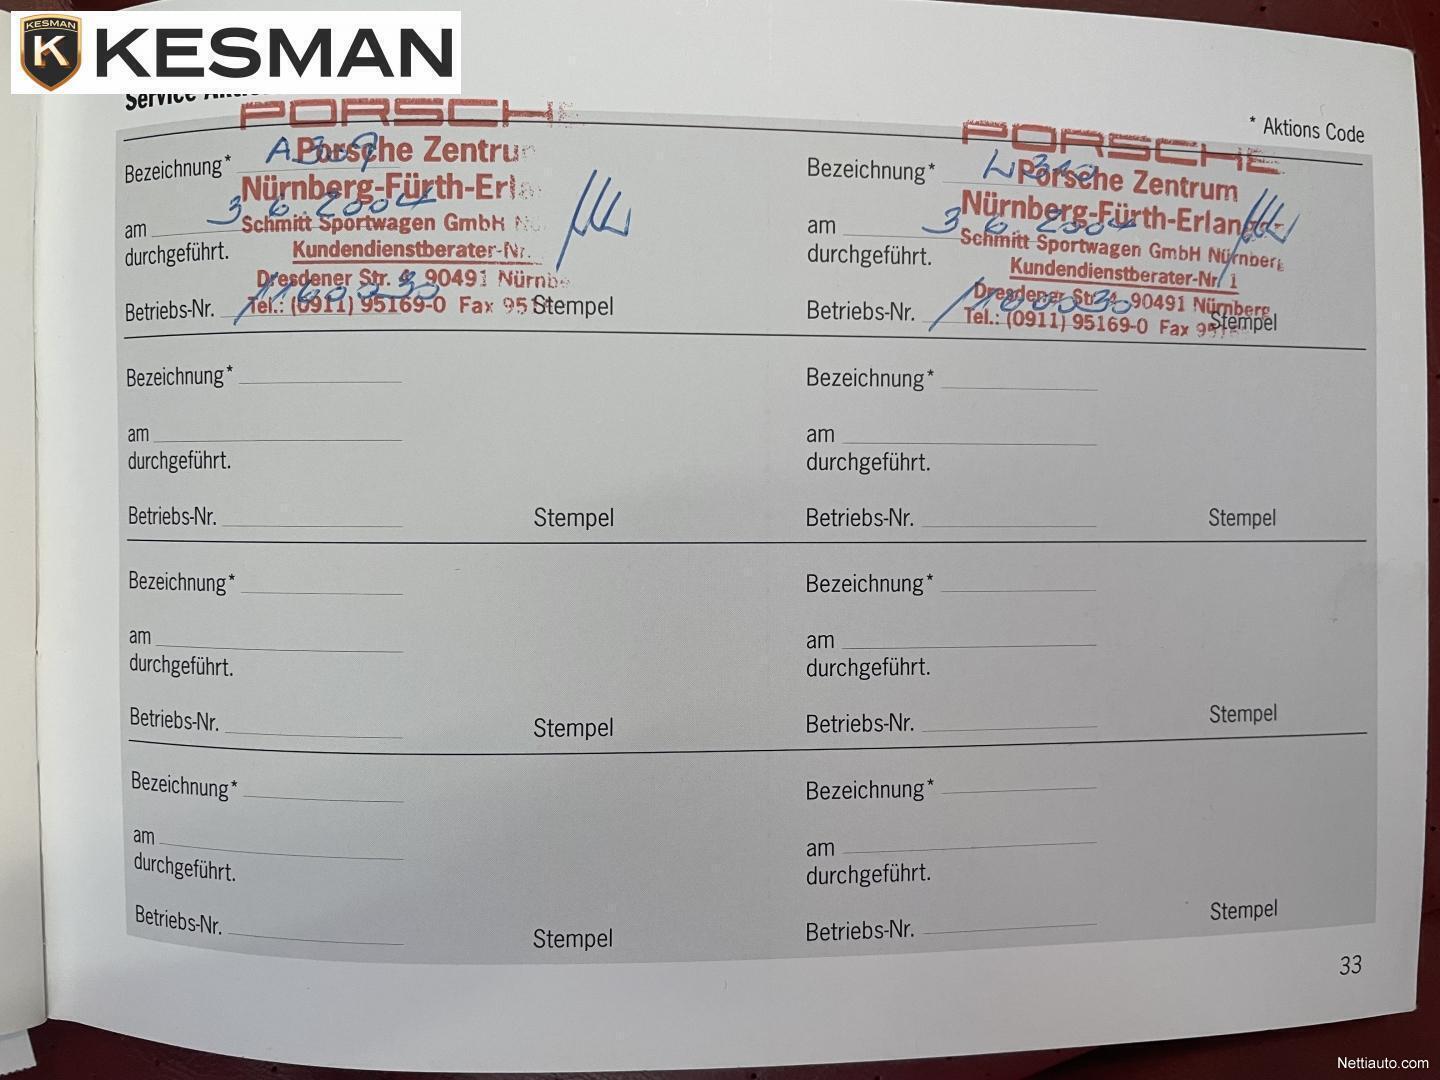 KESMAN
K KESMAN
Service
* Aktions Code
PORSCHE
Porsche Zentrum
Nürnberg-Fürth-Erla
Schmitt Sportwagen GmbH Nü
Kundendienstberater-Nr.
Dresdener Str. 90491 Nürnbe
Tel.: (0911) 95169-0 Fax 951
Bezeichnung* A309
am 3 6 2004
durchgeführt.
Betriebs-Nr. Stempel
PORSCHE
Porsche Zentrum
Nürnberg-Fürth-Erlangen
Schmitt Sportwagen GmbH Nürnberg
Kundendienstberater-Nr. 1
Dresdener Str. 90491 Nürnberg
Tel.: (0911) 95169-0 Fax 9516
Bezeichnung*
am 3 6 2004
durchgeführt.
Betriebs-Nr. Stempel
Bezeichnung*
am
durchgeführt.
Betriebs-Nr. Stempel
Bezeichnung*
am
durchgeführt.
Betriebs-Nr. Stempel
Bezeichnung*
am
durchgeführt.
Betriebs-Nr. Stempel
Bezeichnung*
am
durchgeführt.
Betriebs-Nr. Stempel
Bezeichnung*
am
durchgeführt.
Betriebs-Nr. Stempel
Bezeichnung*
am
durchgeführt.
Betriebs-Nr. Stempel
33
Nettiauto.com